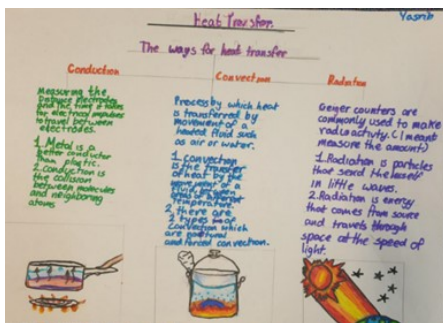 Heat Transfer.
Yasmin
The ways for heat transfer
Conduction
Measuring the
Distance electrodes
and the time it takes
for electrical impulses
to travel between
electrodes.
1. Metal is a
better conductor
than plastic.
2. conduction is
the collision
between molecules
and neighboring
atoms
Convection
Process by which heat
is transferred by
movement of a
heated fluid such
as air or water.
1. convection
is the transfer
of heat by the
movement of a
areas of different
Temperature.
2. there are
2 types of
convection which
are natural
and forced convection.
Radiation
Geiger counters are
commonly used to make
radioactivity. (I meant
measure the amount)
1. Radiation is particles
that send themself
in little waves.
2. Radiation is energy
that comes from source
and travels through
space at the speed of
light.